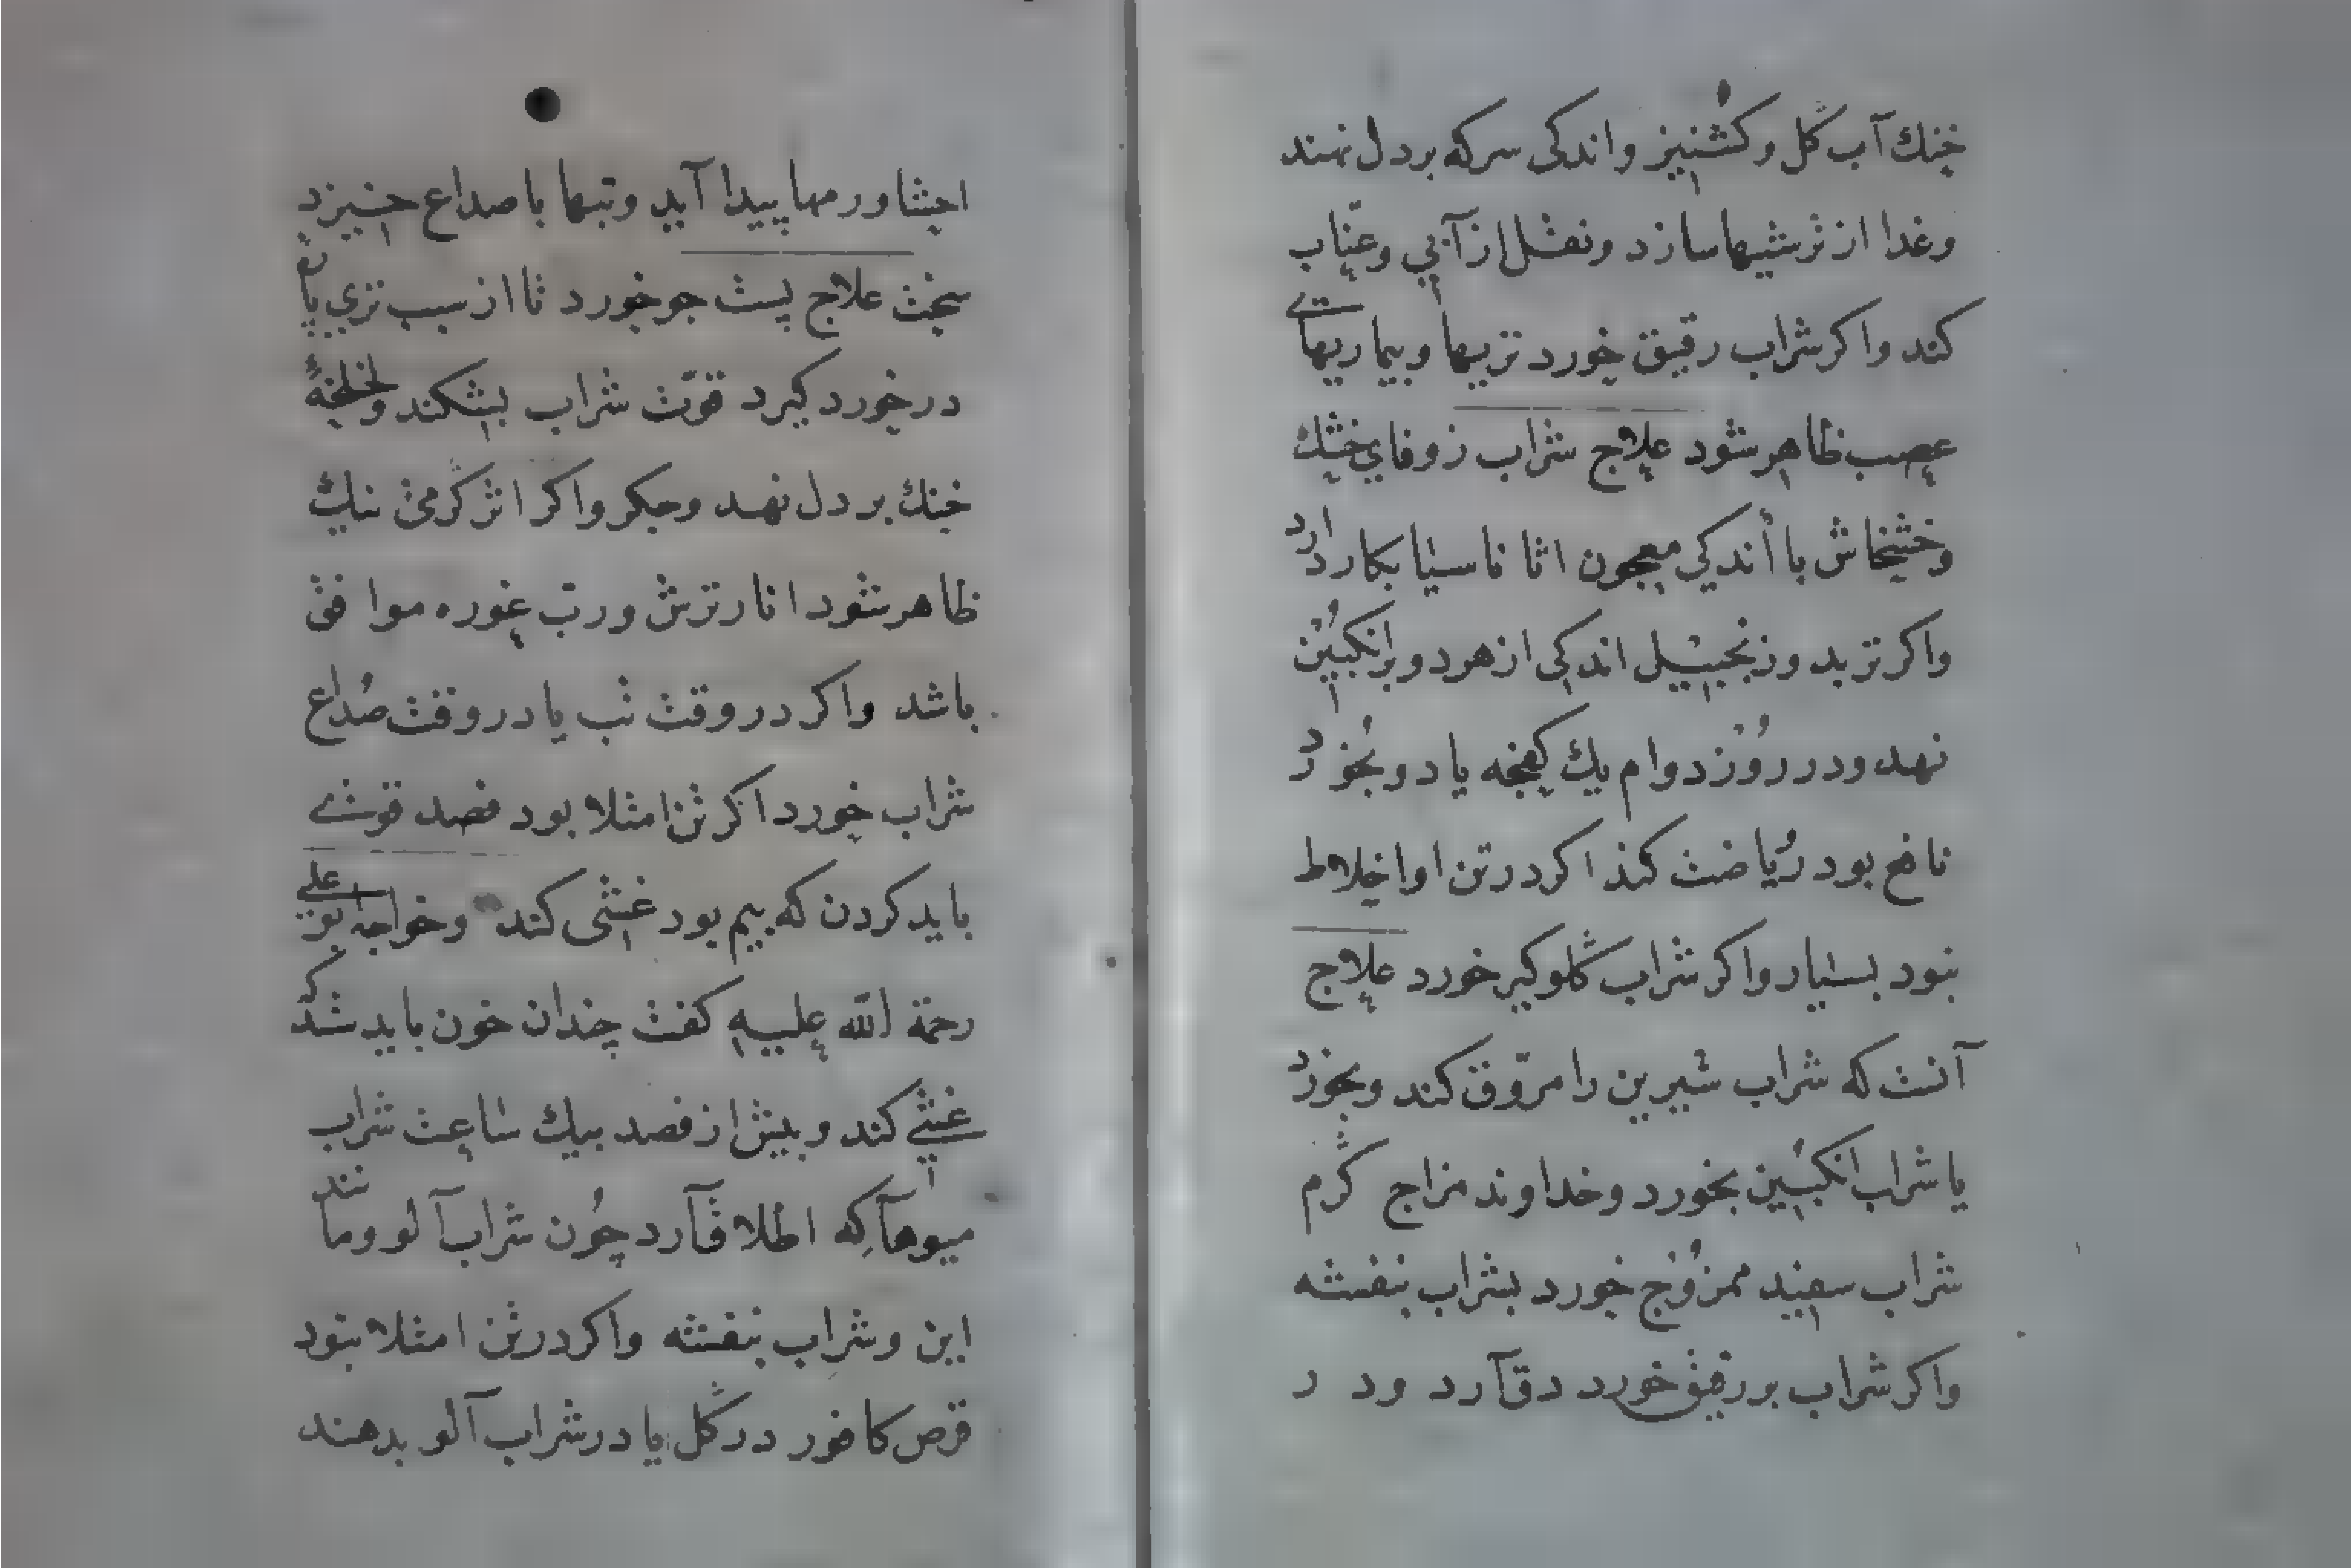 خنك آب گل و کشنیز و اندکی سرکه بر دل نهند
وغدا از ترشیها سازد ونقل از آبی وعنّاب
کند واکر شراب رقیق خورد تریها وبیماریهاے
عصب ظاهر شود علاج شراب زوفای خشك
وخشخاش با اندکی معجون اثاناسیا بکار دارد
واکر تربد وزنجبیل اندکی از هر دو برانکبین
نهد ودر روز دوام یك کفچه یا دو بخورد
نافع بود ریاضت کند اکر در تن او اخلاط
نبود بسیار واکر شراب گلوکیر خورد علاج
آنست که شراب شیرین را مروّق کند وبخورد
یا شراب انکبین بخورد وخداوند مزاج گرم
شراب سفید ممزوج خورد بشراب بنفشه
واکر شراب بر ریق خورد دق آرد ودر
احشا ورمها پیدا آید وتبها با صداع خیزد
سخت علاج پست جو خورد تا از سبب تری با
در خورد کیرد قوّت شراب بشکند ولخلخهٔ
خنك بر دل نهد وجکر واکر اثر گرمی نیك
ظاهر شود انار ترش وربّ غوره موافق
باشد واکر در وقت تب یا در وقت صُداع
شراب خورد اکر تن امتلا بود فصد قوی
باید کردن که بیم بود غشی کند وخواجه بو علی
رحمة الله علیه کفت چندان خون باید شد که
غشی کند وپیش از فصد بیك ساعت شراب
میوها که اطلاق آرد چُون شراب آلو ومانند
این وشراب بنفشه واکر در تن امتلا نبود
قرص کافور در گل یا در شراب آلو بدهند